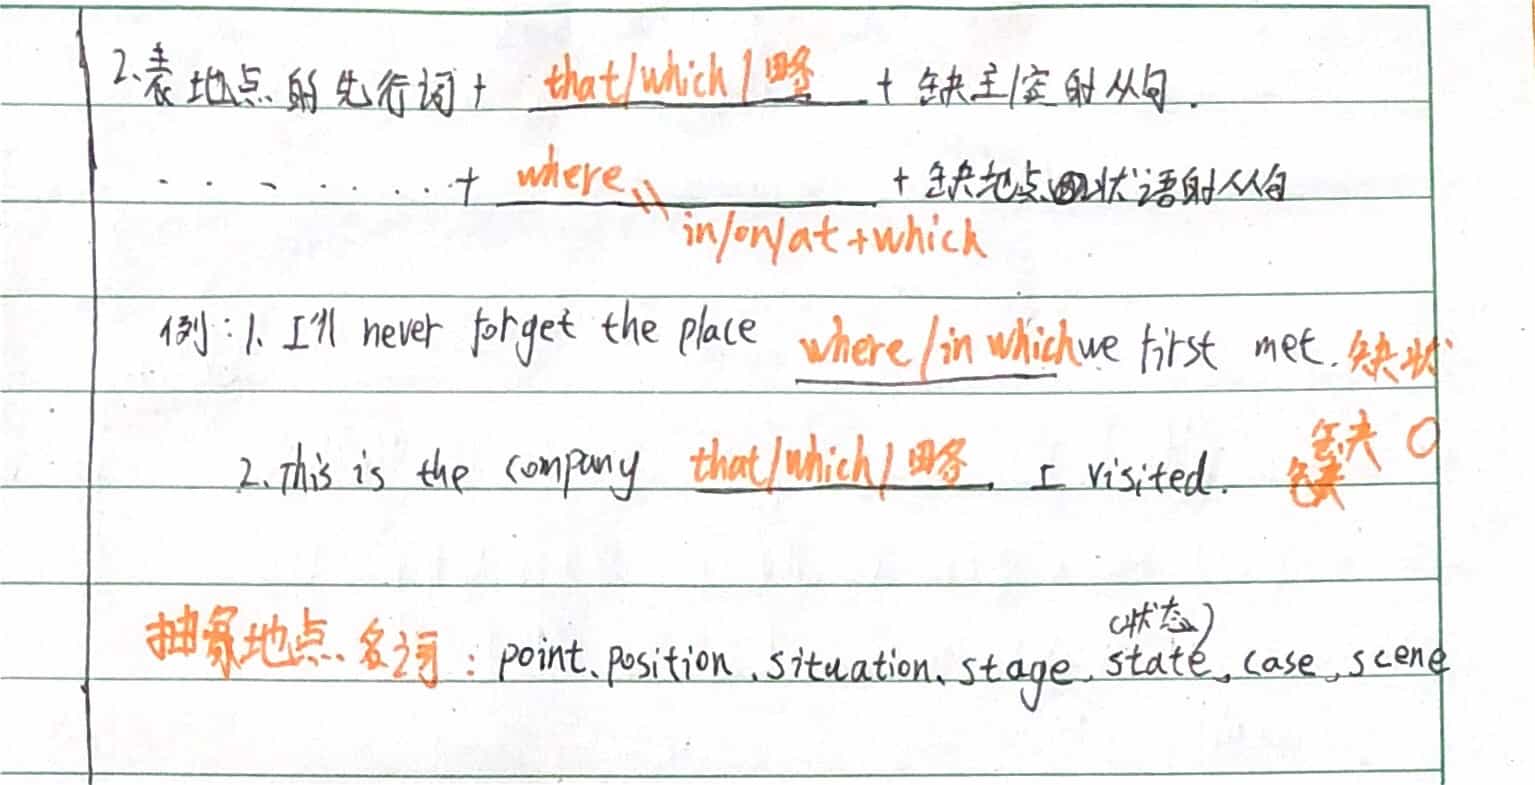 2.表地点的先行词+ that/which/略 +缺主/宾的从句.
......+ where \\ +缺地点状语的从句
in/on/at+which
例:1. I'll never forget the place where/in which we first met. 缺状
2.This is the company that/which/略 I visited. 缺O
抽象地点名词:point、position、situation、stage、state(状态)、case、scene